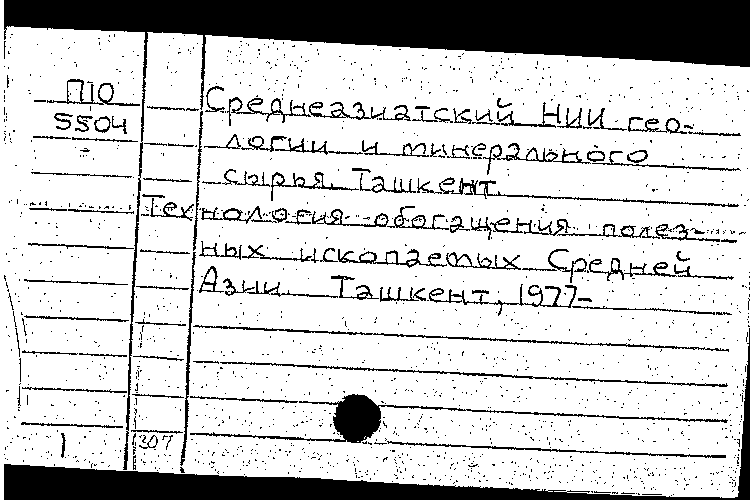 П10
5504
Среднеазиатский НИИ гео-
логии и минерального
сырья. Ташкент.
Технология обогащения полез-
ных ископаемых Средней
Азии. Ташкент, 1977-
1
307